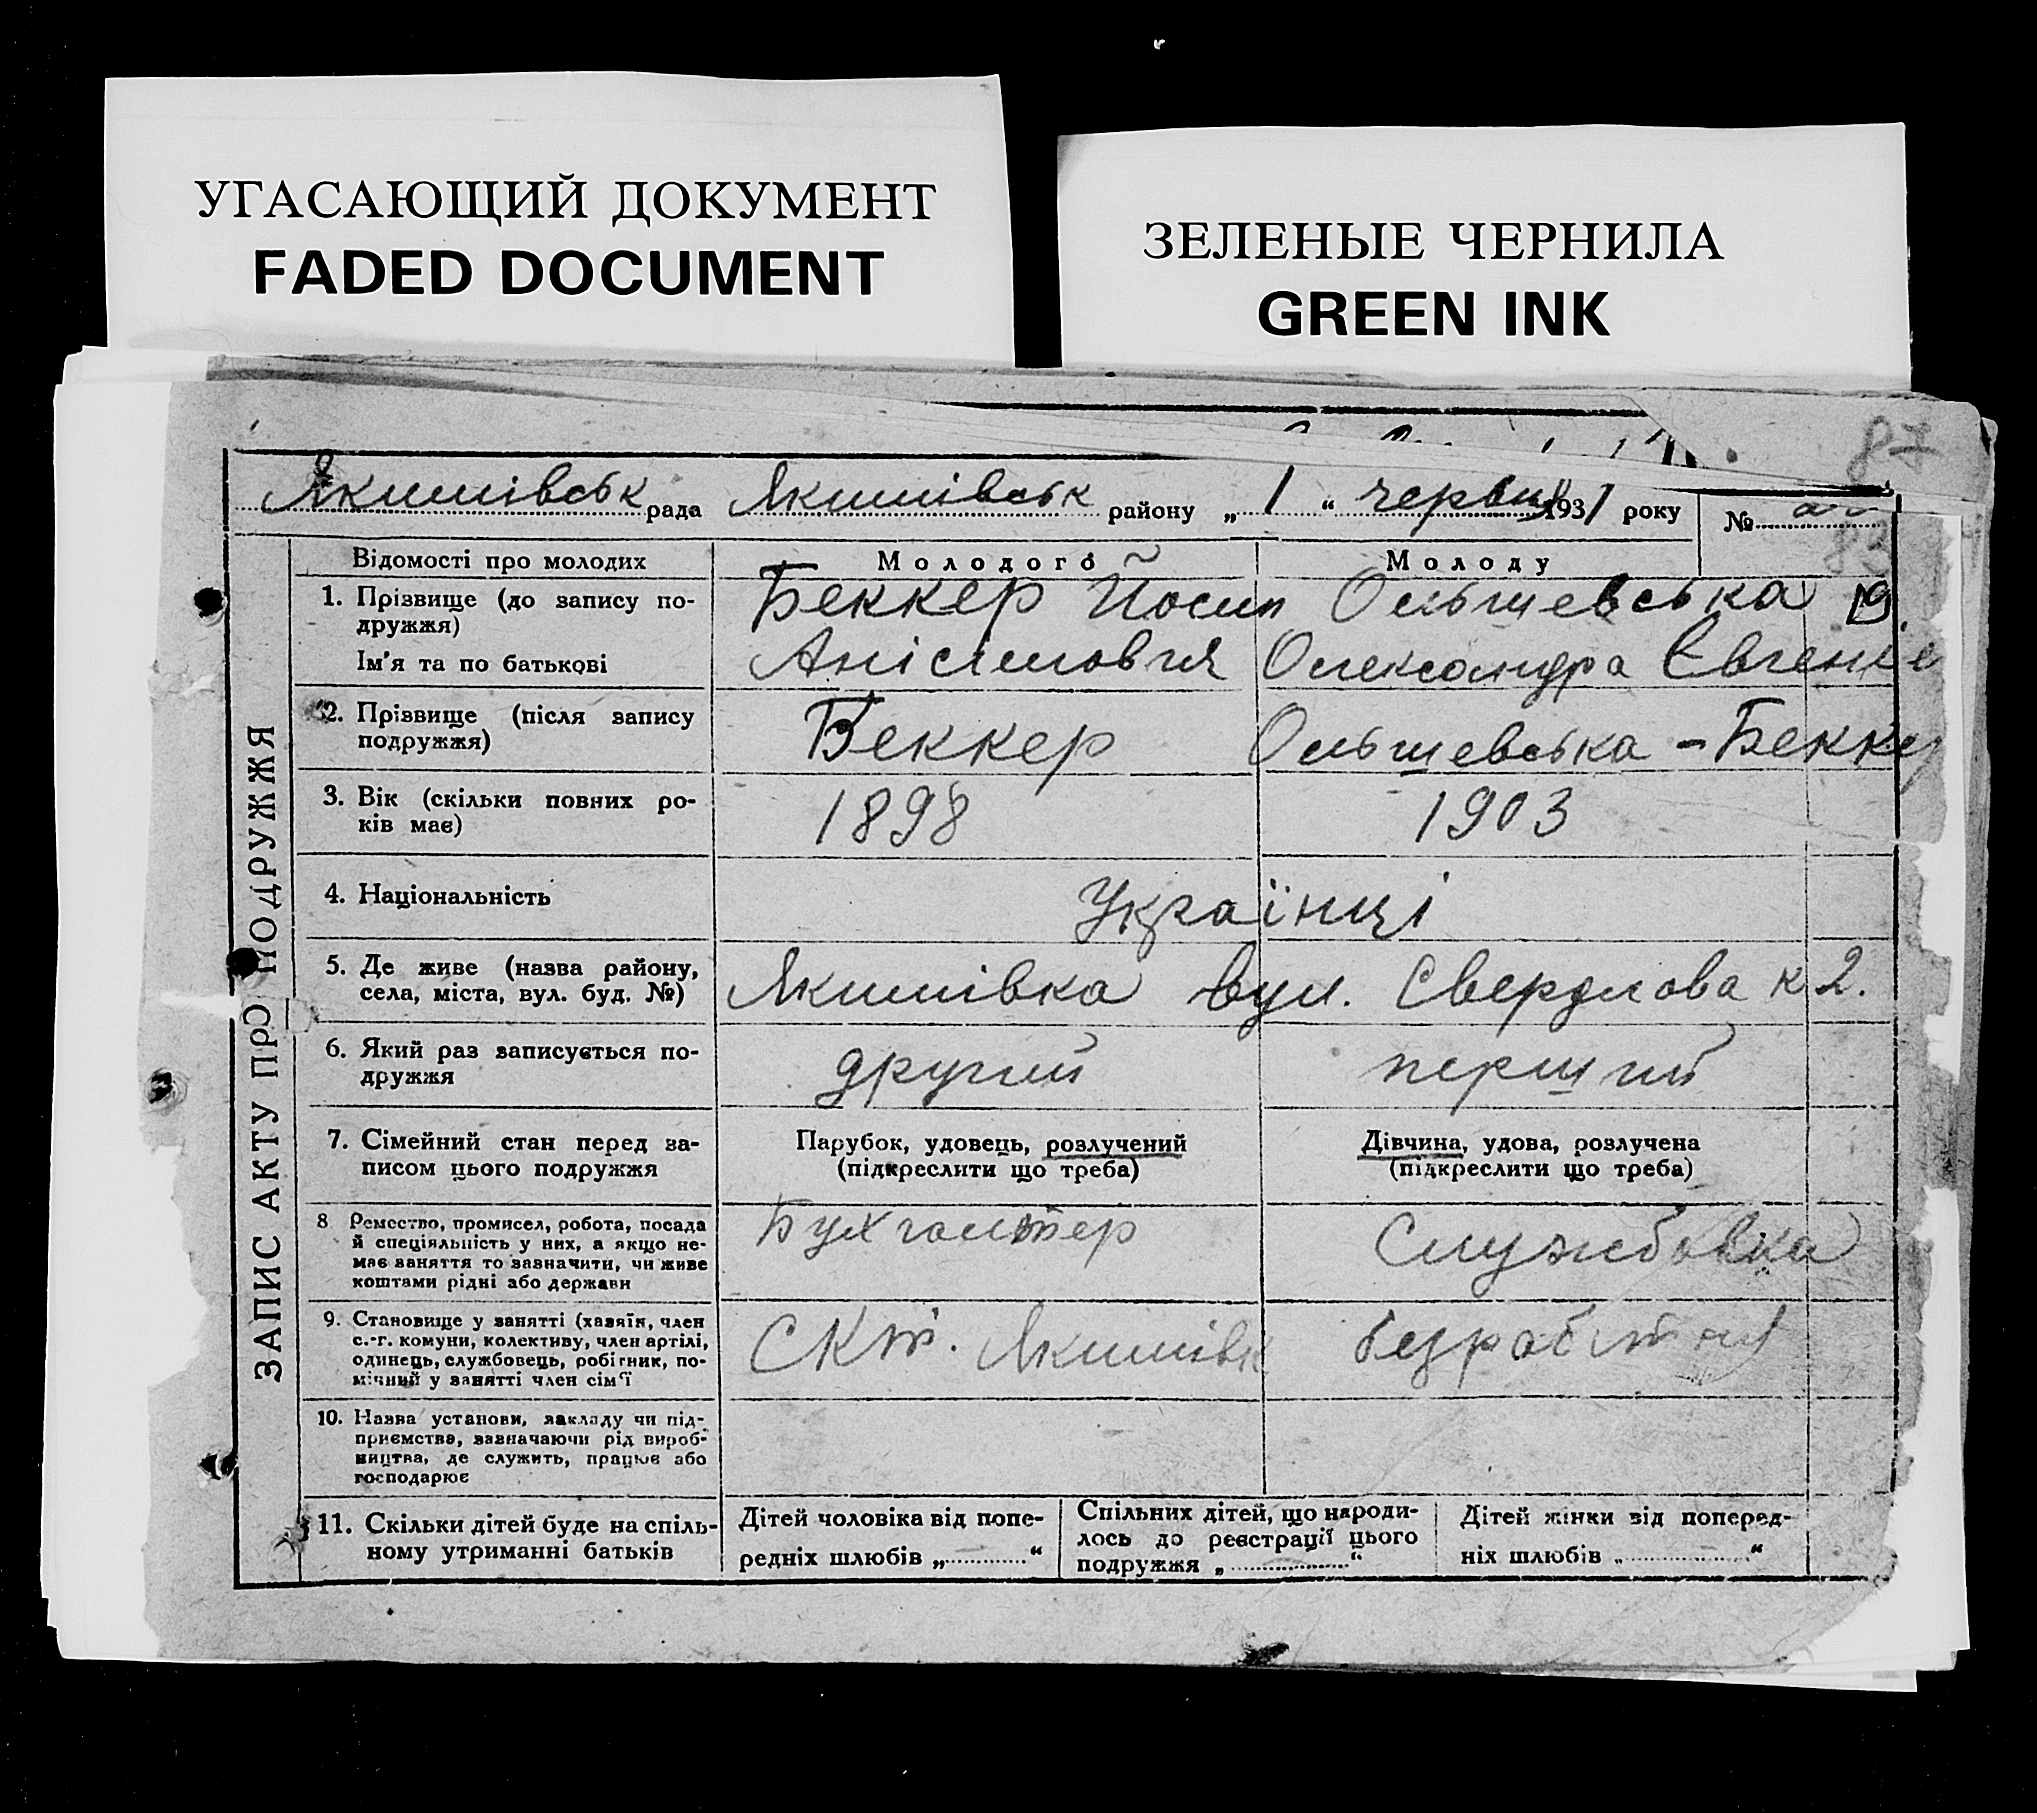 УГАСАЮЩИЙ ДОКУМЕНТ
FADED DOCUMENT
ЗЕЛЕНЫЕ ЧЕРНИЛА
GREEN INK
87
Якимівськ рада Якимівськ району „ 1 “ червня 1931 року №
83
ЗАПИС АКТУ ПРО ПОДРУЖЖЯ
Відомості про молодих
Молодого
Молоду
1. Прізвище (до запису по-
дружжя)
Ім'я та по батькові
Беккер Йосип
Анісімович
Ольшевська
Олександра Євгеніє
2. Прізвище (після запису
подружжя)
Беккер
Ольшевська - Беккер
3. Вік (скільки повних ро-
ків має)
1898
1903
4. Національність
Українці
5. Де живе (назва району,
села, міста, вул. буд. №)
Якимівка вул. Свердлова к 2.
6. Який раз записується по-
дружжя
другий
перший
7. Сімейний стан перед за-
писом цього подружжя
Парубок, удовець, розлучений
(підкреслити що треба)
Дівчина, удова, розлучена
(підкреслити що треба)
8 Ремество, промисел, робота, посада
й спеціяльність у них, а якщо не-
має заняття то зазначити, чи живе
коштами рідні або держави
Бухгалтер
Службовка
9. Становище у занятті (хазяїн, член
с.-г. комуни, колективу, член артілі,
одинець, службовець, робітник, по-
мічний у занятті член сім'ї
СКТ. Якимівк
безробітну
10. Назва установи, закладу чи під-
приємства, зазначаючи рід вироб-
ництва, де служить, працює або
господарює
11. Скільки дітей буде на спіль-
ному утриманні батьків
Дітей чоловіка від попе-
редніх шлюбів „ “
Спільних дітей, що народи-
лось до реєстрації цього
подружжя „ “
Дітей жінки від поперед-
ніх шлюбів „ “